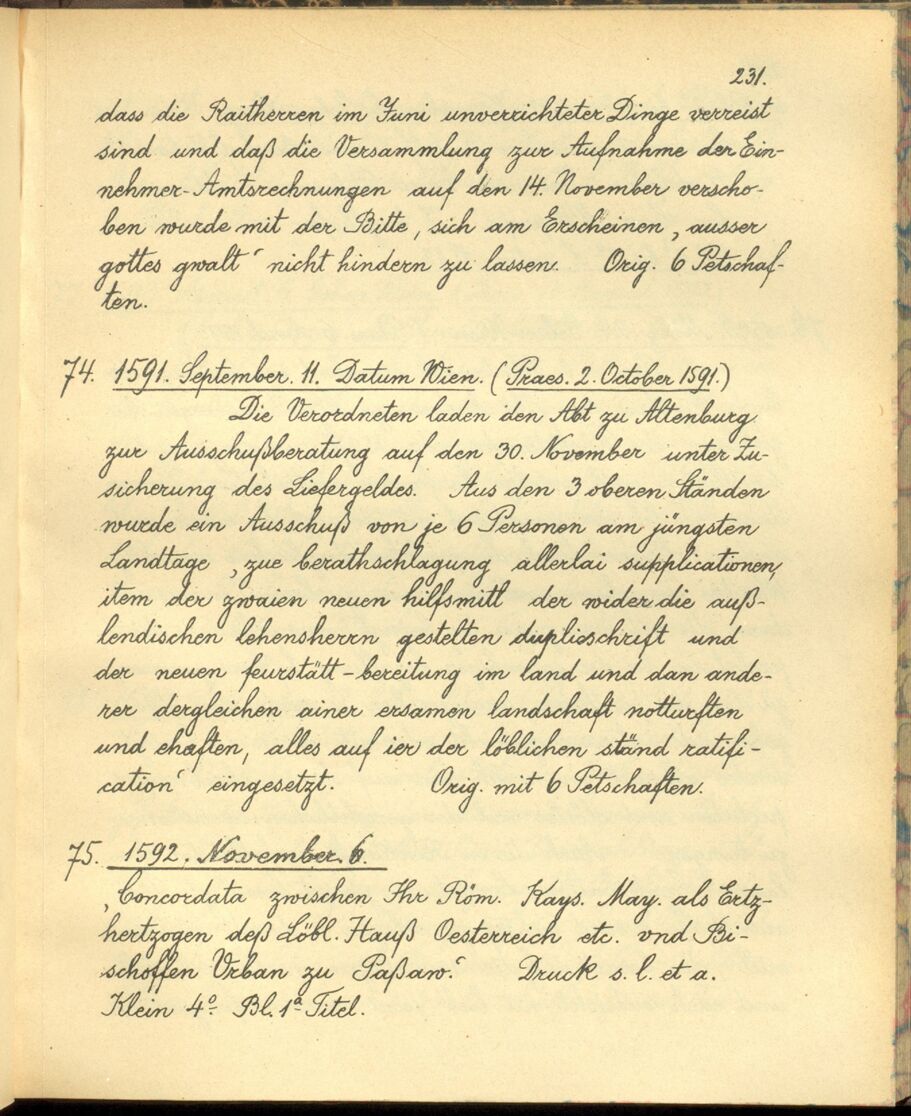 231.
dass die Raitherren im Juni unverrichteter Dinge verreist
sind und daß die Versammlung zur Aufnahme der Ein-
nehmer-Amtsrechnungen auf den 14. November verscho-
ben wurde mit der Bitte, sich am Erscheinen ‚ausser
gottes gwalt‘ nicht hindern zu lassen. Orig. 6 Petschaf-
ten.
74. 1591. September. 11. Datum Wien. (Praes. 2. October 1591.)
Die Verordneten laden den Abt zu Altenburg
zur Ausschußberatung auf den 30. November unter Zu-
sicherung des Liefergeldes. Aus den 3 oberen Ständen
wurde ein Ausschuß von je 6 Personen am jüngsten
Landtage ‚zue berathschlagung allerlai supplicationen,
item der zwaien neuen hilfsmitl der wider die auß-
lendischen lehensherrn gestelten duplicschrift und
der neuen feurstätt-bereitung im land und dan ande-
rer dergleichen ainer ersamen landschaft notturften
und ehaften, alles auf ier der löblichen ständ ratifi-
cation‘ eingesetzt. Orig. mit 6 Petschaften.
75. 1592. November. 6.
‚Concordata zwischen Ihr Röm. Kays. May. als Ertz-
hertzogen deß Löbl. Hauß Oesterreich etc. vnd Bi-
schoffen Vrban zu Paßaw.‘ Druck s. l. et a.
Klein 4º Bl. 1ª Titel.